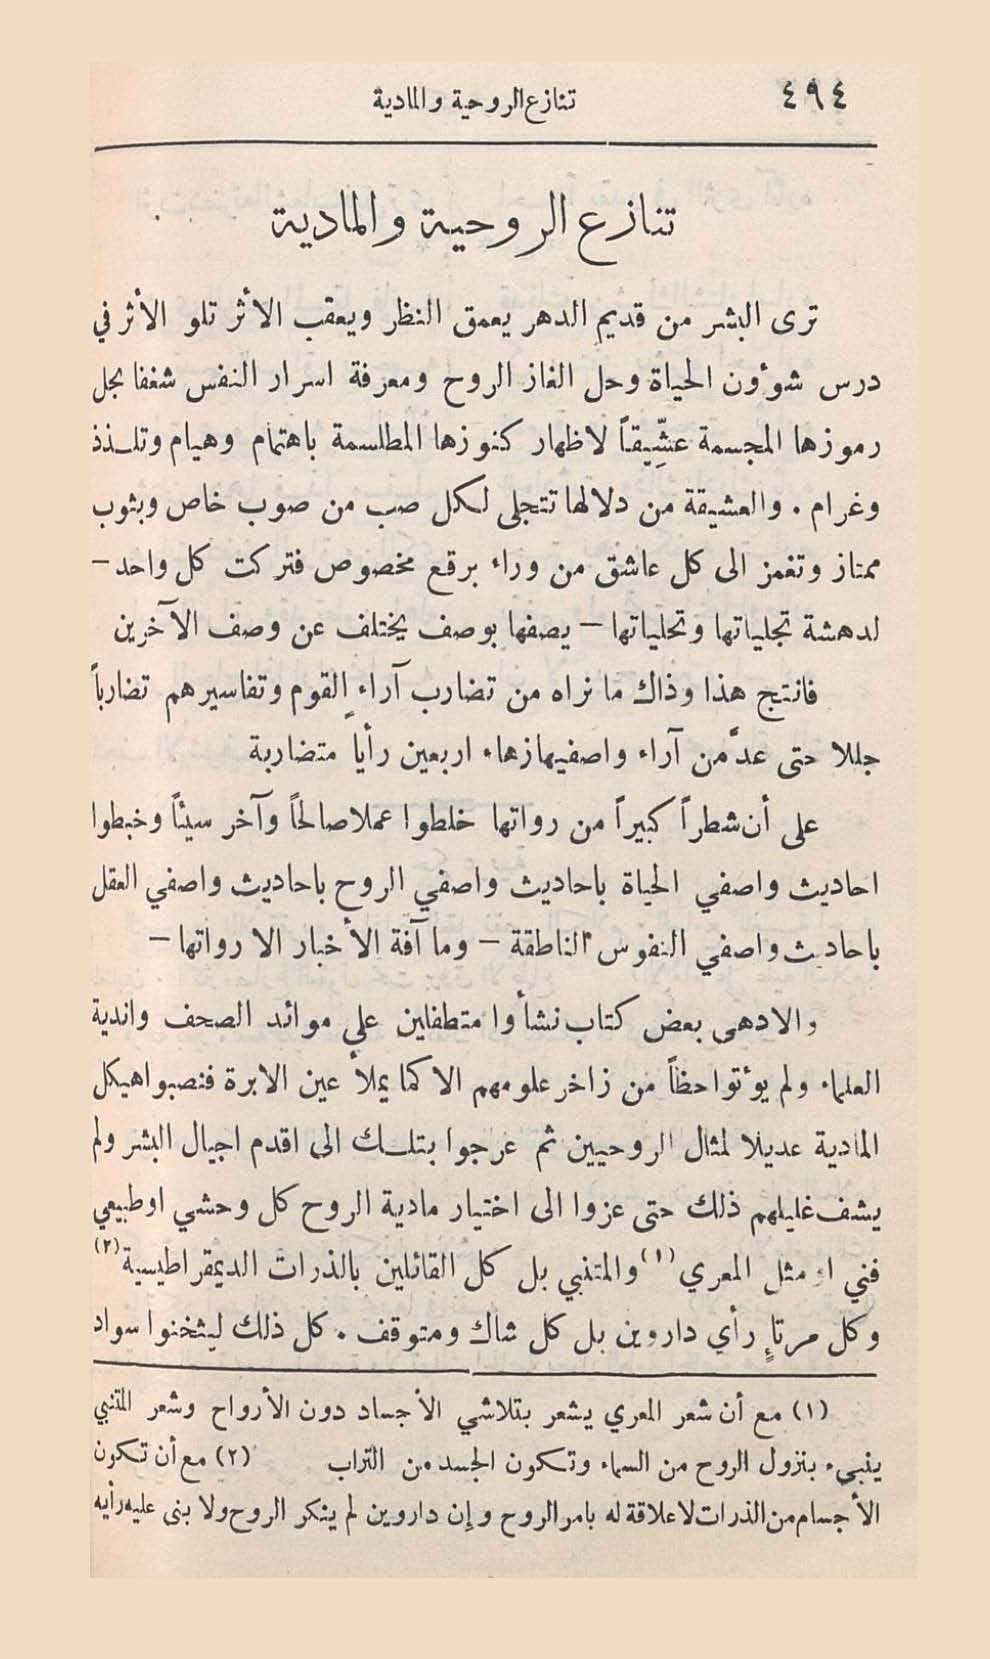 ٤٩٤
تنازع الروحية والمادية
تنازع الروحية والمادية
ترى البشر من قديم الدهر يعمق النظر ويعقب الأثر تلو الأثر في
درس شوؤن الحياة وحل الغاز الروح ومعرفة اسرار النفس شغفا بحل
رموزها المجسمة عشِّيقاً لاظهار كنوزها المطلسمة باهتمام وهيام وتلـذذ
وغرام . والعشيقة من دلالها تتجلى لكل صب من صوب خاص وبثوب
ممتاز وتغمز الى كل عاشق من وراء برقع مخصوص فتركت كل واحد –
لدهشة تجلياتها وتحلياتها – يصفها بوصف يختلف عن وصف الآخرين
فانتج هذا وذاك ما نراه من تضارب آراء القوم وتفاسيرهم تضارباً
جللا حتى عدَّ من آراء واصفيها زهاء اربعين رأيا متضاربة
على أن شطراً كبيراً من رواتها خلطوا عملا صالحاً وآخر سيئاً وخبطوا
احاديث واصفي الحياة باحاديث واصفي الروح باحاديث واصفي العقل
باحاديث واصفي النفوس الناطقة – وما آفة الأخبار الا رواتها –
والادهى بعض كتاب نشأوا متطفلين على موائد الصحف واندية
العلماء ولم يوٴتوا حظاً من زاخر علومهم الا كما يملأ عين الابرة فنصبوا هيكل
المادية عديلا لمثال الروحيين ثم عرجوا بتلـك الى اقدم اجيال البشر ولم
يشف غليلهم ذلك حتى عزوا الى اختيار مادية الروح كل وحشي او طبيعي
فني او مثل المعري (١) والمتنبي بل كل القائلين بالذرات الديمقراطيسية (٢)
وكل مرتاءٍ رأي داروين بل كل شاك ومتوقف . كل ذلك ليثخنوا سواد
(١) مع أن شعر المعري يشعر بتلاشي الأجساد دون الأرواح وشعر المتنبي
ينبيء بنزول الروح من السماء وتكون الجسد من التراب (٢) مع أن تكون
الأجسام من الذرات لا علاقة له بامر الروح وإن داروين لم ينكر الروح ولا بنى عليه رأيه